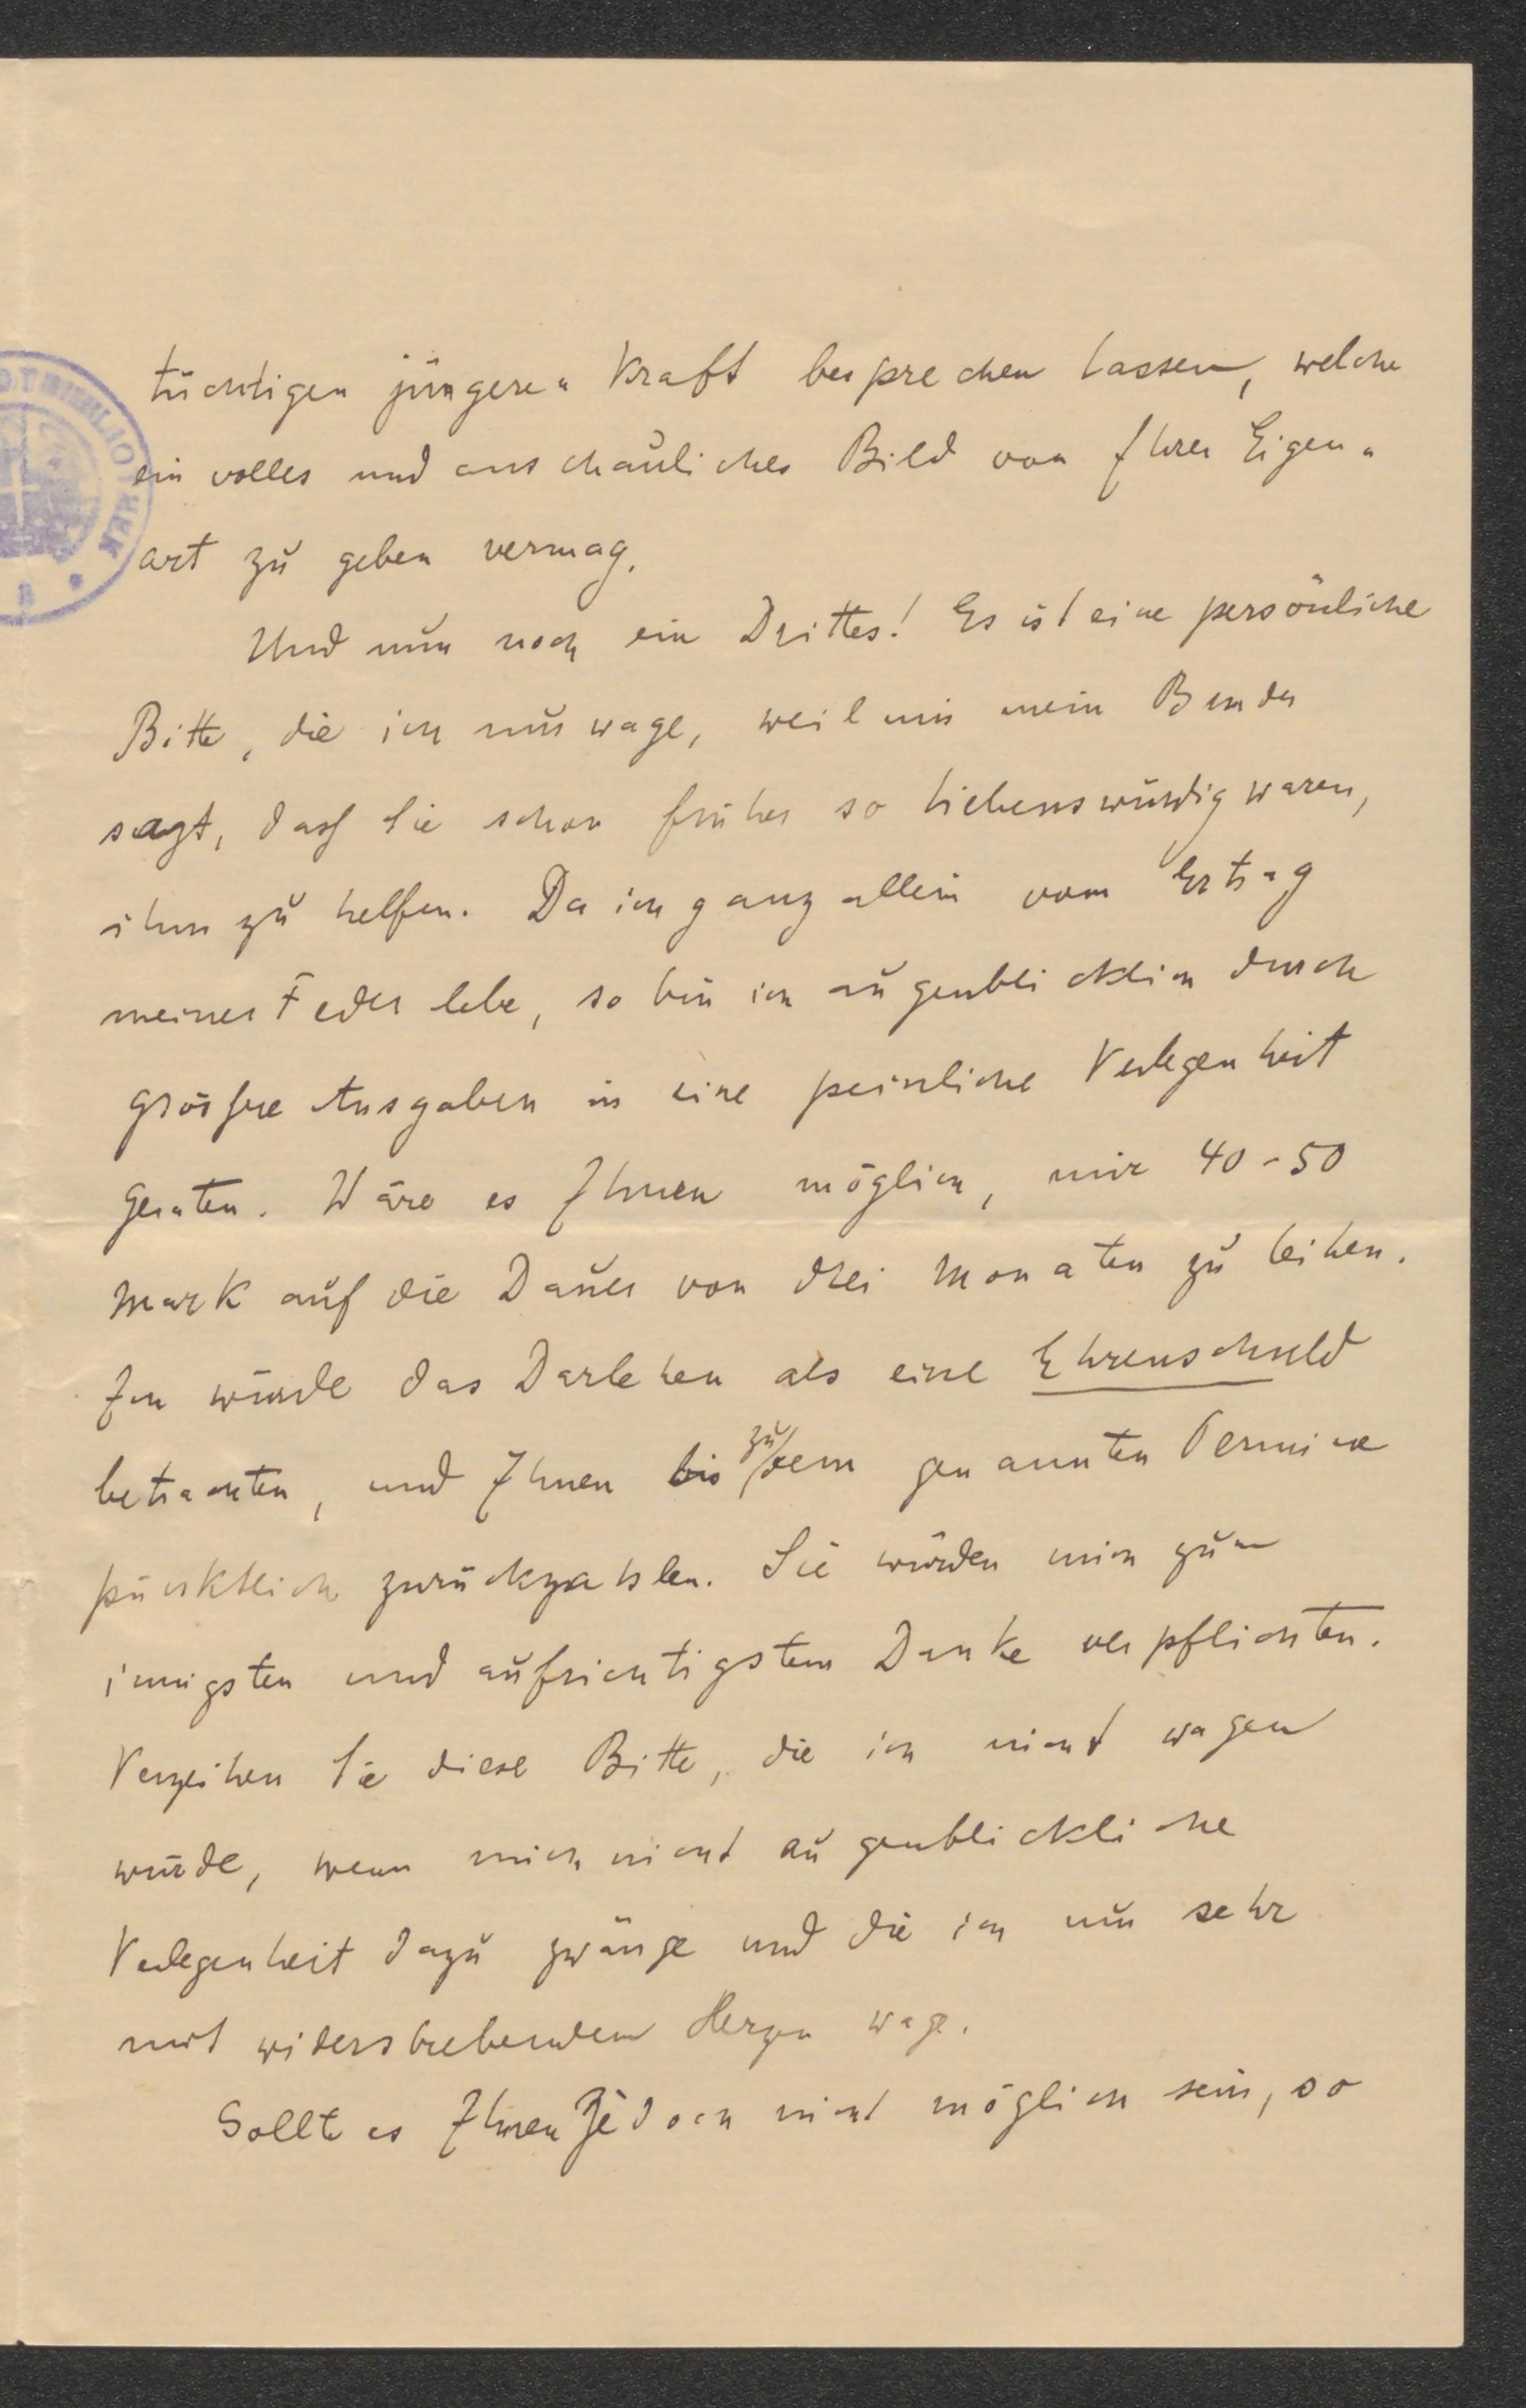 tüchtigen jüngeren Kraft besprechen lassen, welche
ein volles und anschauliches Bild von Ihrer Eigen-
art zu geben vermag.
Und nun noch ein Drittes! Es ist eine persönliche
Bitte, die ich nur wage, weil mir mein Bruder
sagt, dass Sie schon früher so liebenswürdig waren,
ihm zu helfen. Da ich ganz allein vom Ertrag
meiner Feder lebe, so bin ich augenblicklich durch
grössere Ausgaben in eine peinliche Verlegenheit
geraten. Wäre es Ihnen möglich, mir 40-50
Mark auf die Dauer von drei Monaten zu leihen.
Ich würde das Darlehen als eine Ehrenschuld
betrachten, und Ihnen bis zu dem genannten Termine
pünktlich zurückzahlen. Sie würden mich zum
innigsten und aufrichtigstem Danke verpflichten.
Verzeihen Sie diese Bitte, die ich nicht wagen
würde, wenn mich nicht augenblickliche
Verlegenheit dazu zwänge und die ich nur sehr
mit widerstrebendem Herzen wage.
Sollte es Ihnen jedoch nicht möglich sein, so